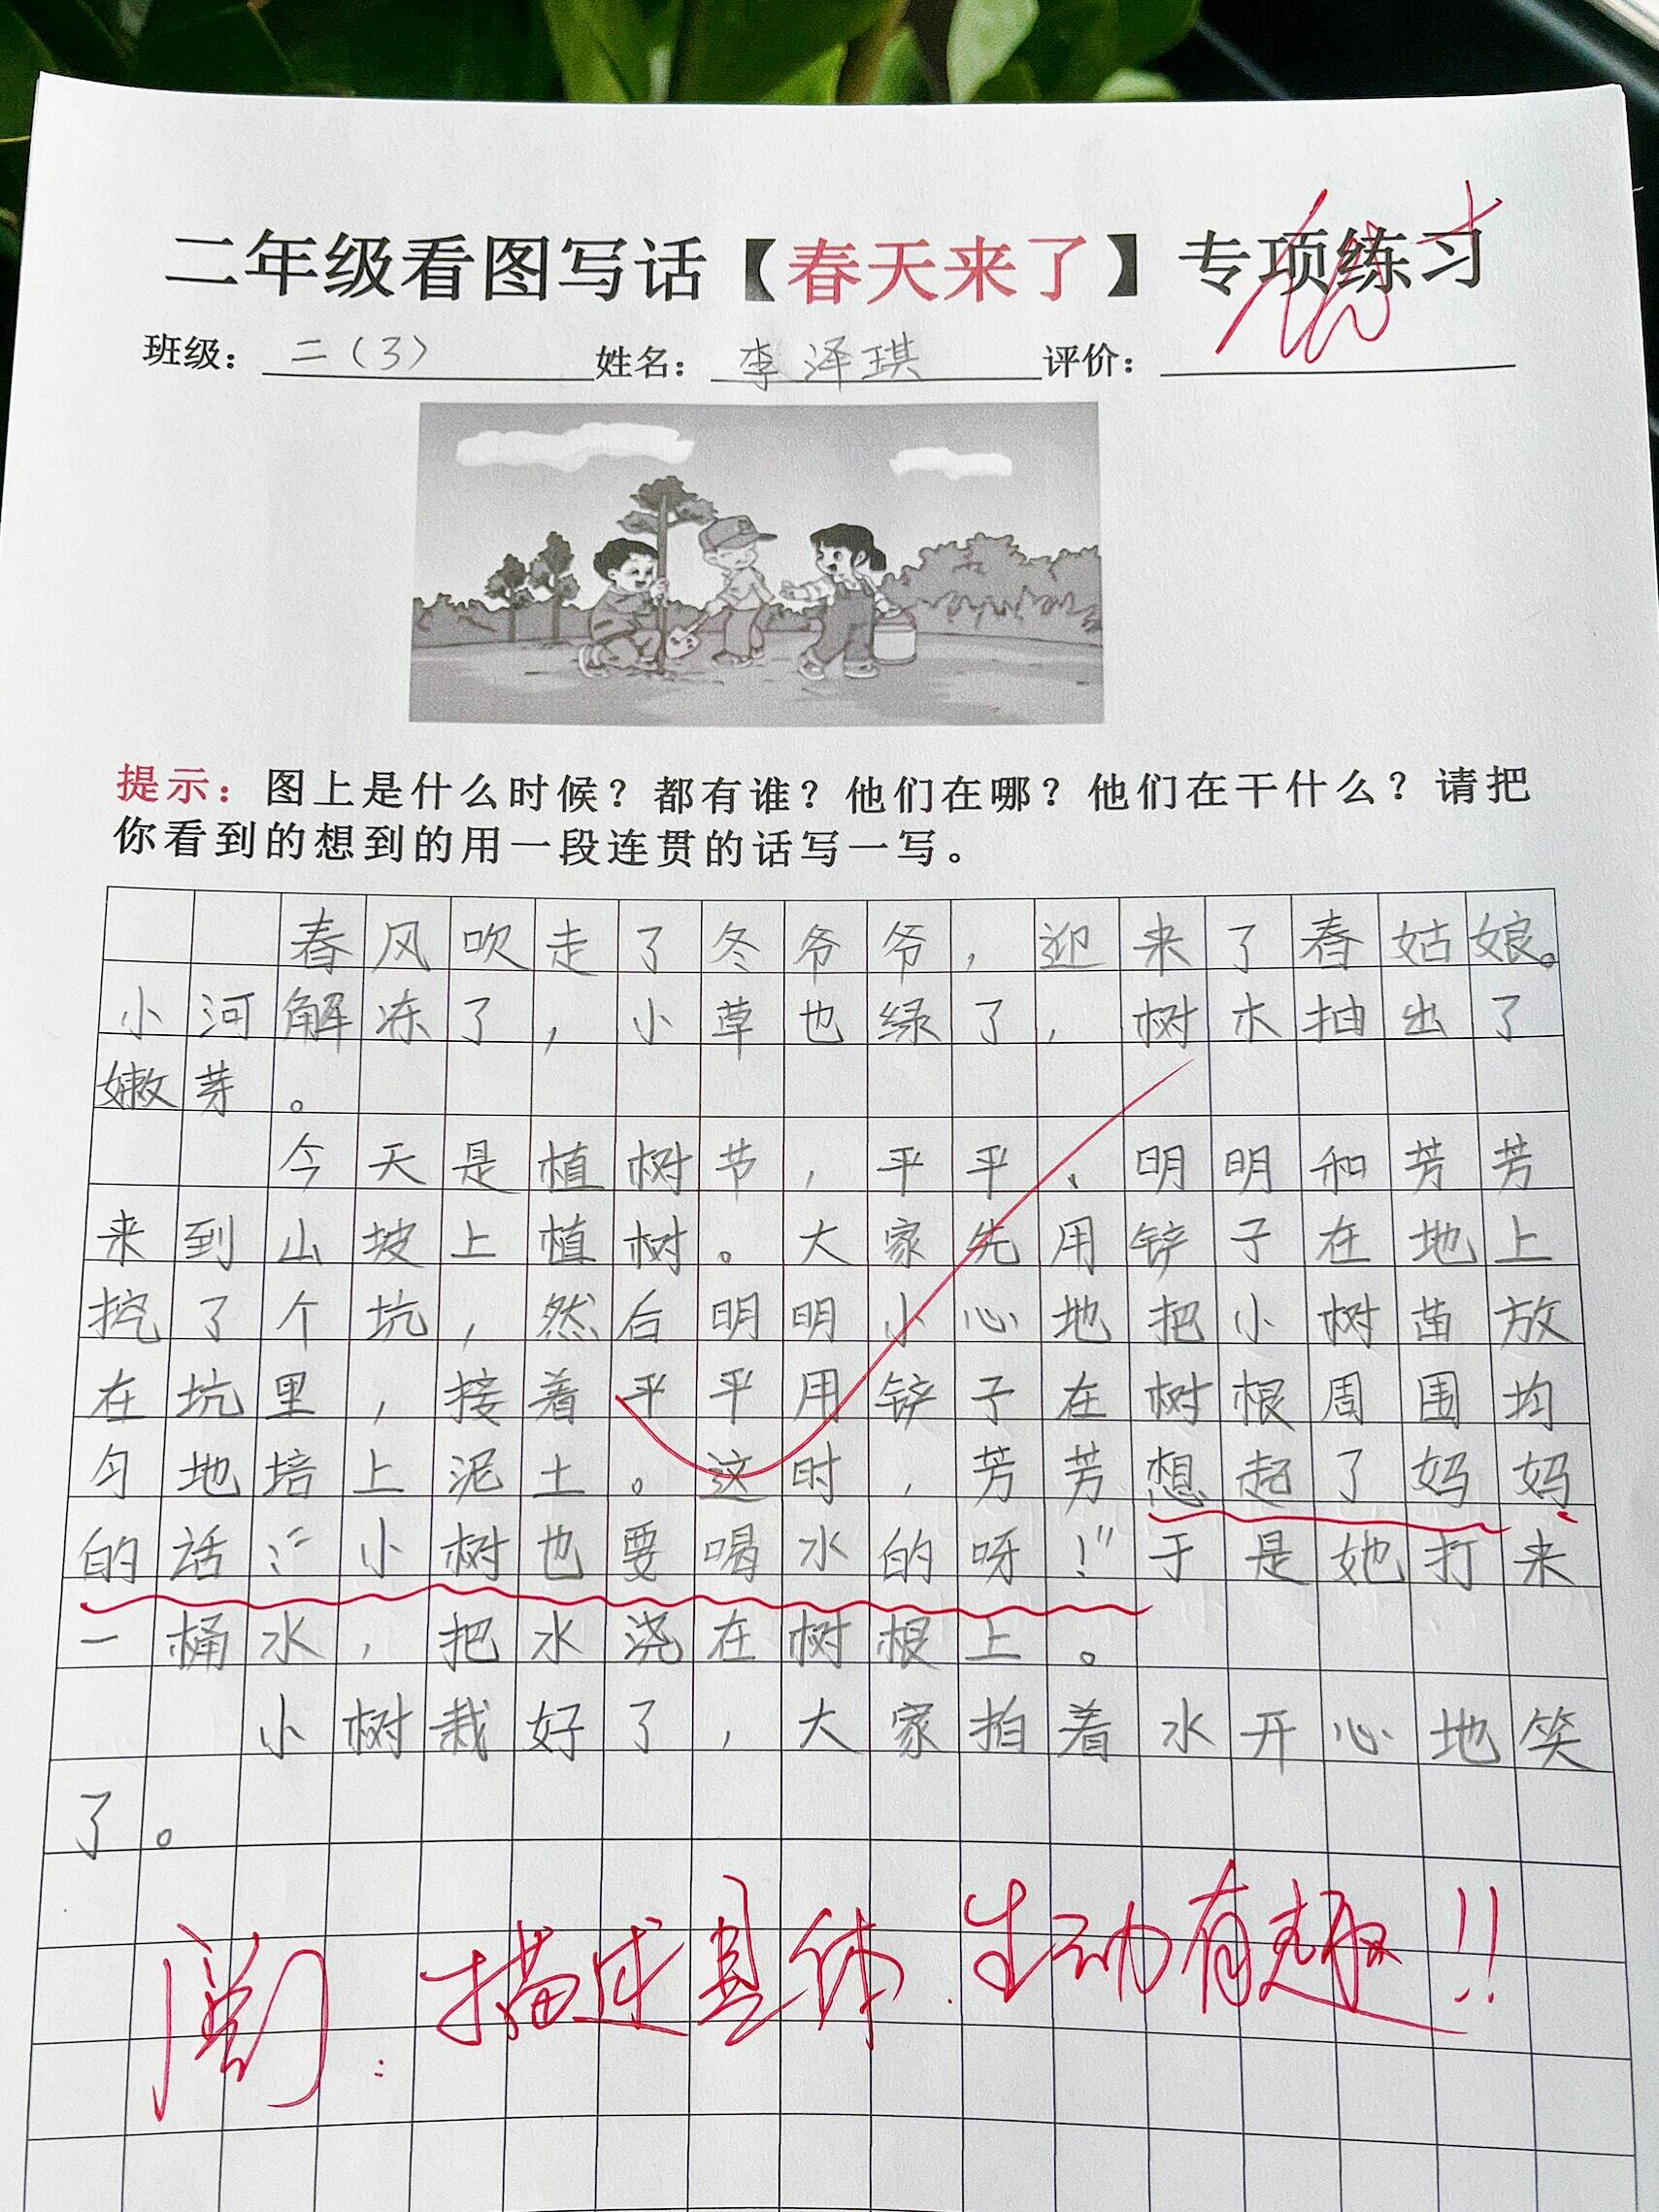 二年级看图写话【春天来了】专项练习
优+
班级：二（3） 姓名：李泽琪 评价：
提示：图上是什么时候？都有谁？他们在哪？他们在干什么？请把
你看到的想到的用一段连贯的话写一写。
春风吹走了冬爷爷，迎来了春姑娘。
小河解冻了，小草也绿了，树木抽出了
嫩芽。
今天是植树节，平平、明明和芳芳
来到山坡上植树。大家先用铲子在地上
挖了个坑，然后明明小心地把小树苗放
在坑里，接着平平用铲子在树根周围均
匀地培上泥土。这时，芳芳想起了妈妈
的话：“小树也要喝水的呀！”于是她打来
一桶水，把水浇在树根上。
小树栽好了，大家拍着水开心地笑
了。
阅：描述具体．生动有趣！！